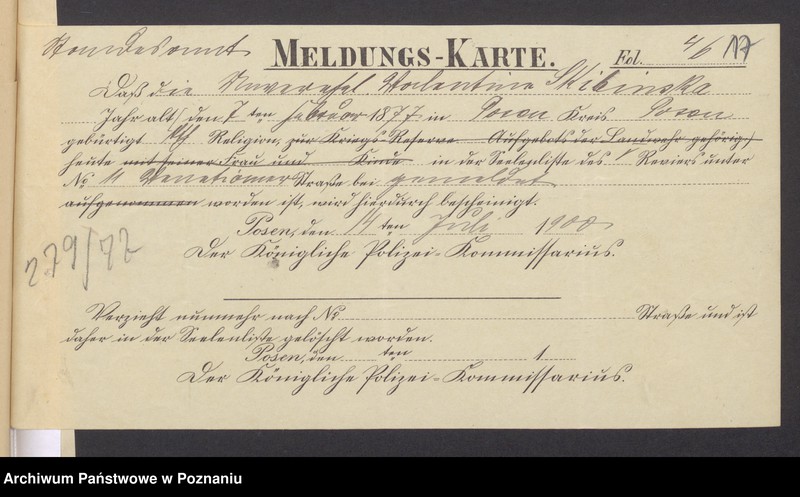 Standesamt MELDUNGS-KARTE. Fol. 4/6 117
Daß die Unverehel. Valentine Skibinska
Jahr alt, den 7 ten Februar 1877 in Posen Kreis Posen
gebürtigt kth Religion, zur Kriegs-Reserve Aufgebots der Landwehr gehörig,
heute mit seiner Frau und Kind in der Seelenliste des V Reviers unter
No 11 Venetianer Straße bei gemeldet
aufgenommen worden ist, wird hierdurch bescheinigt.
Posen, den 14 ten Juli 1900
Der Königliche Polizei-Kommissarius.
279/77
Verzieht nunmehr nach No Straße und ist
daher in der Seelenliste gelöscht worden.
Posen, den ten 1
Der Königliche Polizei-Kommissarius.
Archiwum Państwowe w Poznaniu